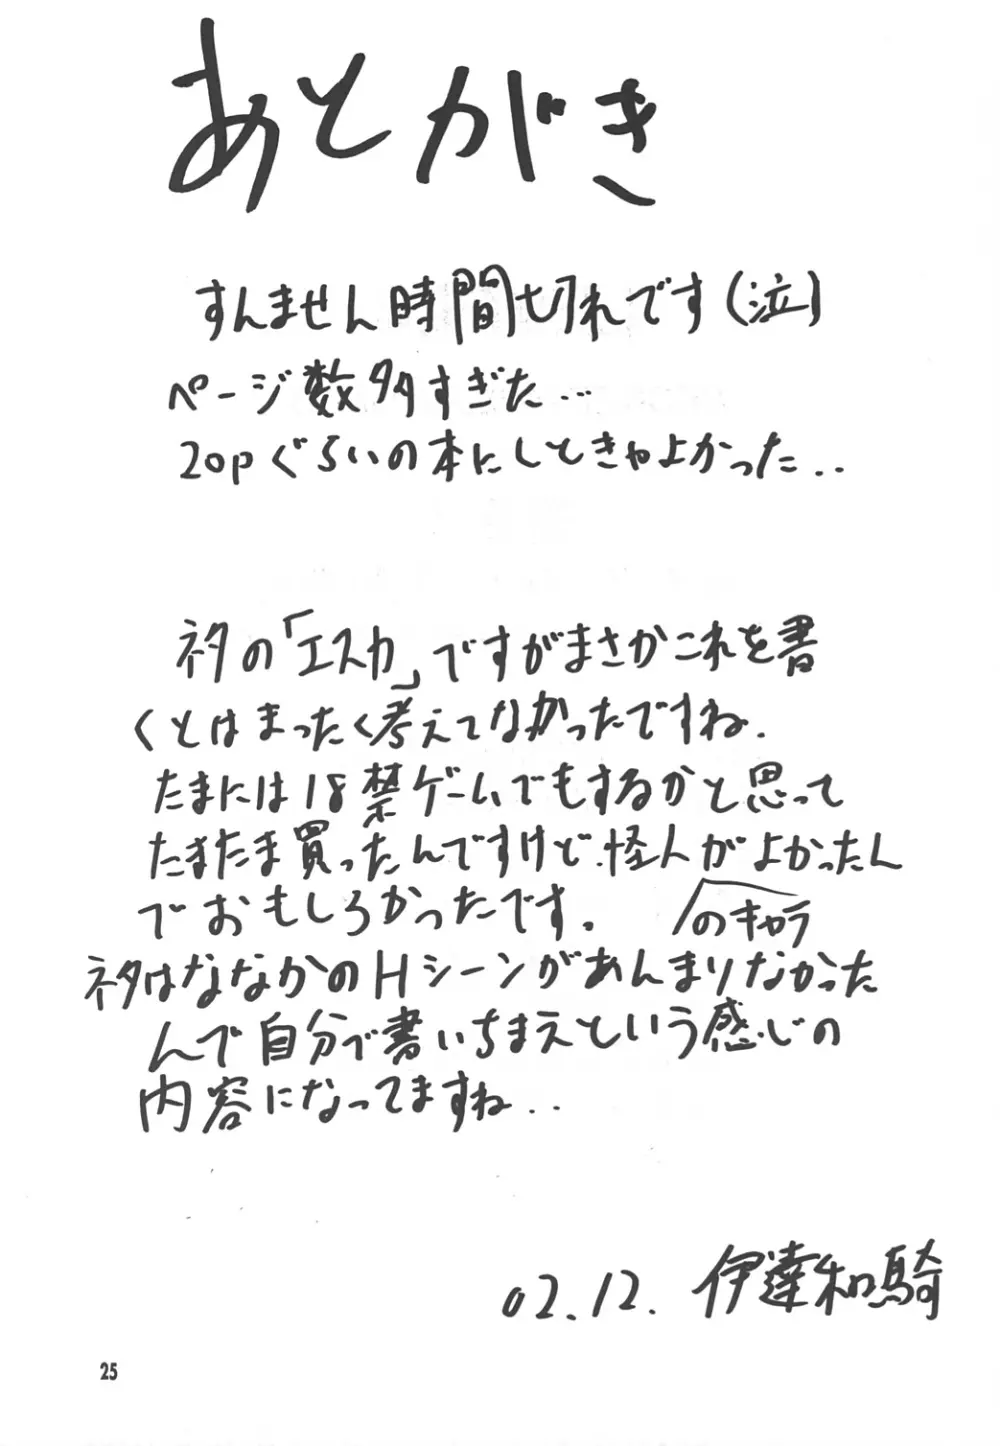 あとがき
すんません時間切れです(泣)
ページ数多すぎた…
20pぐらいの本にしときゃよかった..
ネタの「エスカ」ですがまさかこれを書
くとはまったく考えてなかったですね.
たまには18禁ゲームでもするかと思って
たまたま買ったんですけど.怪人がよかったん
でおもしろかったです。
のキャラ
ネタはななかのHシーンがあんまりなかった
んで自分で書いちまえという感じの
内容になってますね..
02.12. 伊達和騎
25